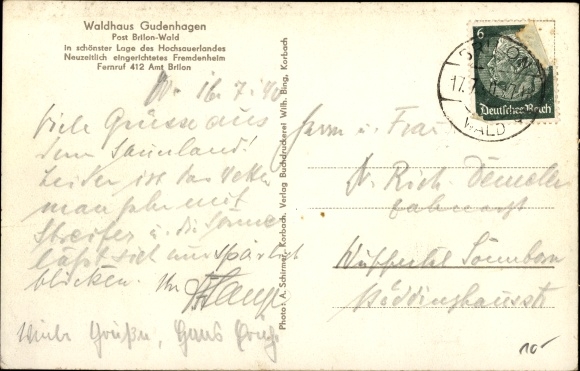 Waldhaus Gudenhagen
Post Brilon-Wald
in schönster Lage des Hochsauerlandes
Neuzeitlich eingerichtetes Fremdenheim
Fernruf 412 Amt Brilon
16.7.40
Viele Grüsse aus
dem Sauerland!
Leider ist das Wetter
und die Sonne
läßt sich nur spärlich
blicken. Ihr
Grüße, Hans
Photo: A. Schirmer, Korbach. Verlag Buchdruckerei Wilh. Bing, Korbach
6
BRILON
17.7.
WALD
Deutsches Reich
Herrn u. Frau
Dr. Rich. Demeler
Zahnarzt
Wuppertal Sonnborn
Möddinghausstr
10-